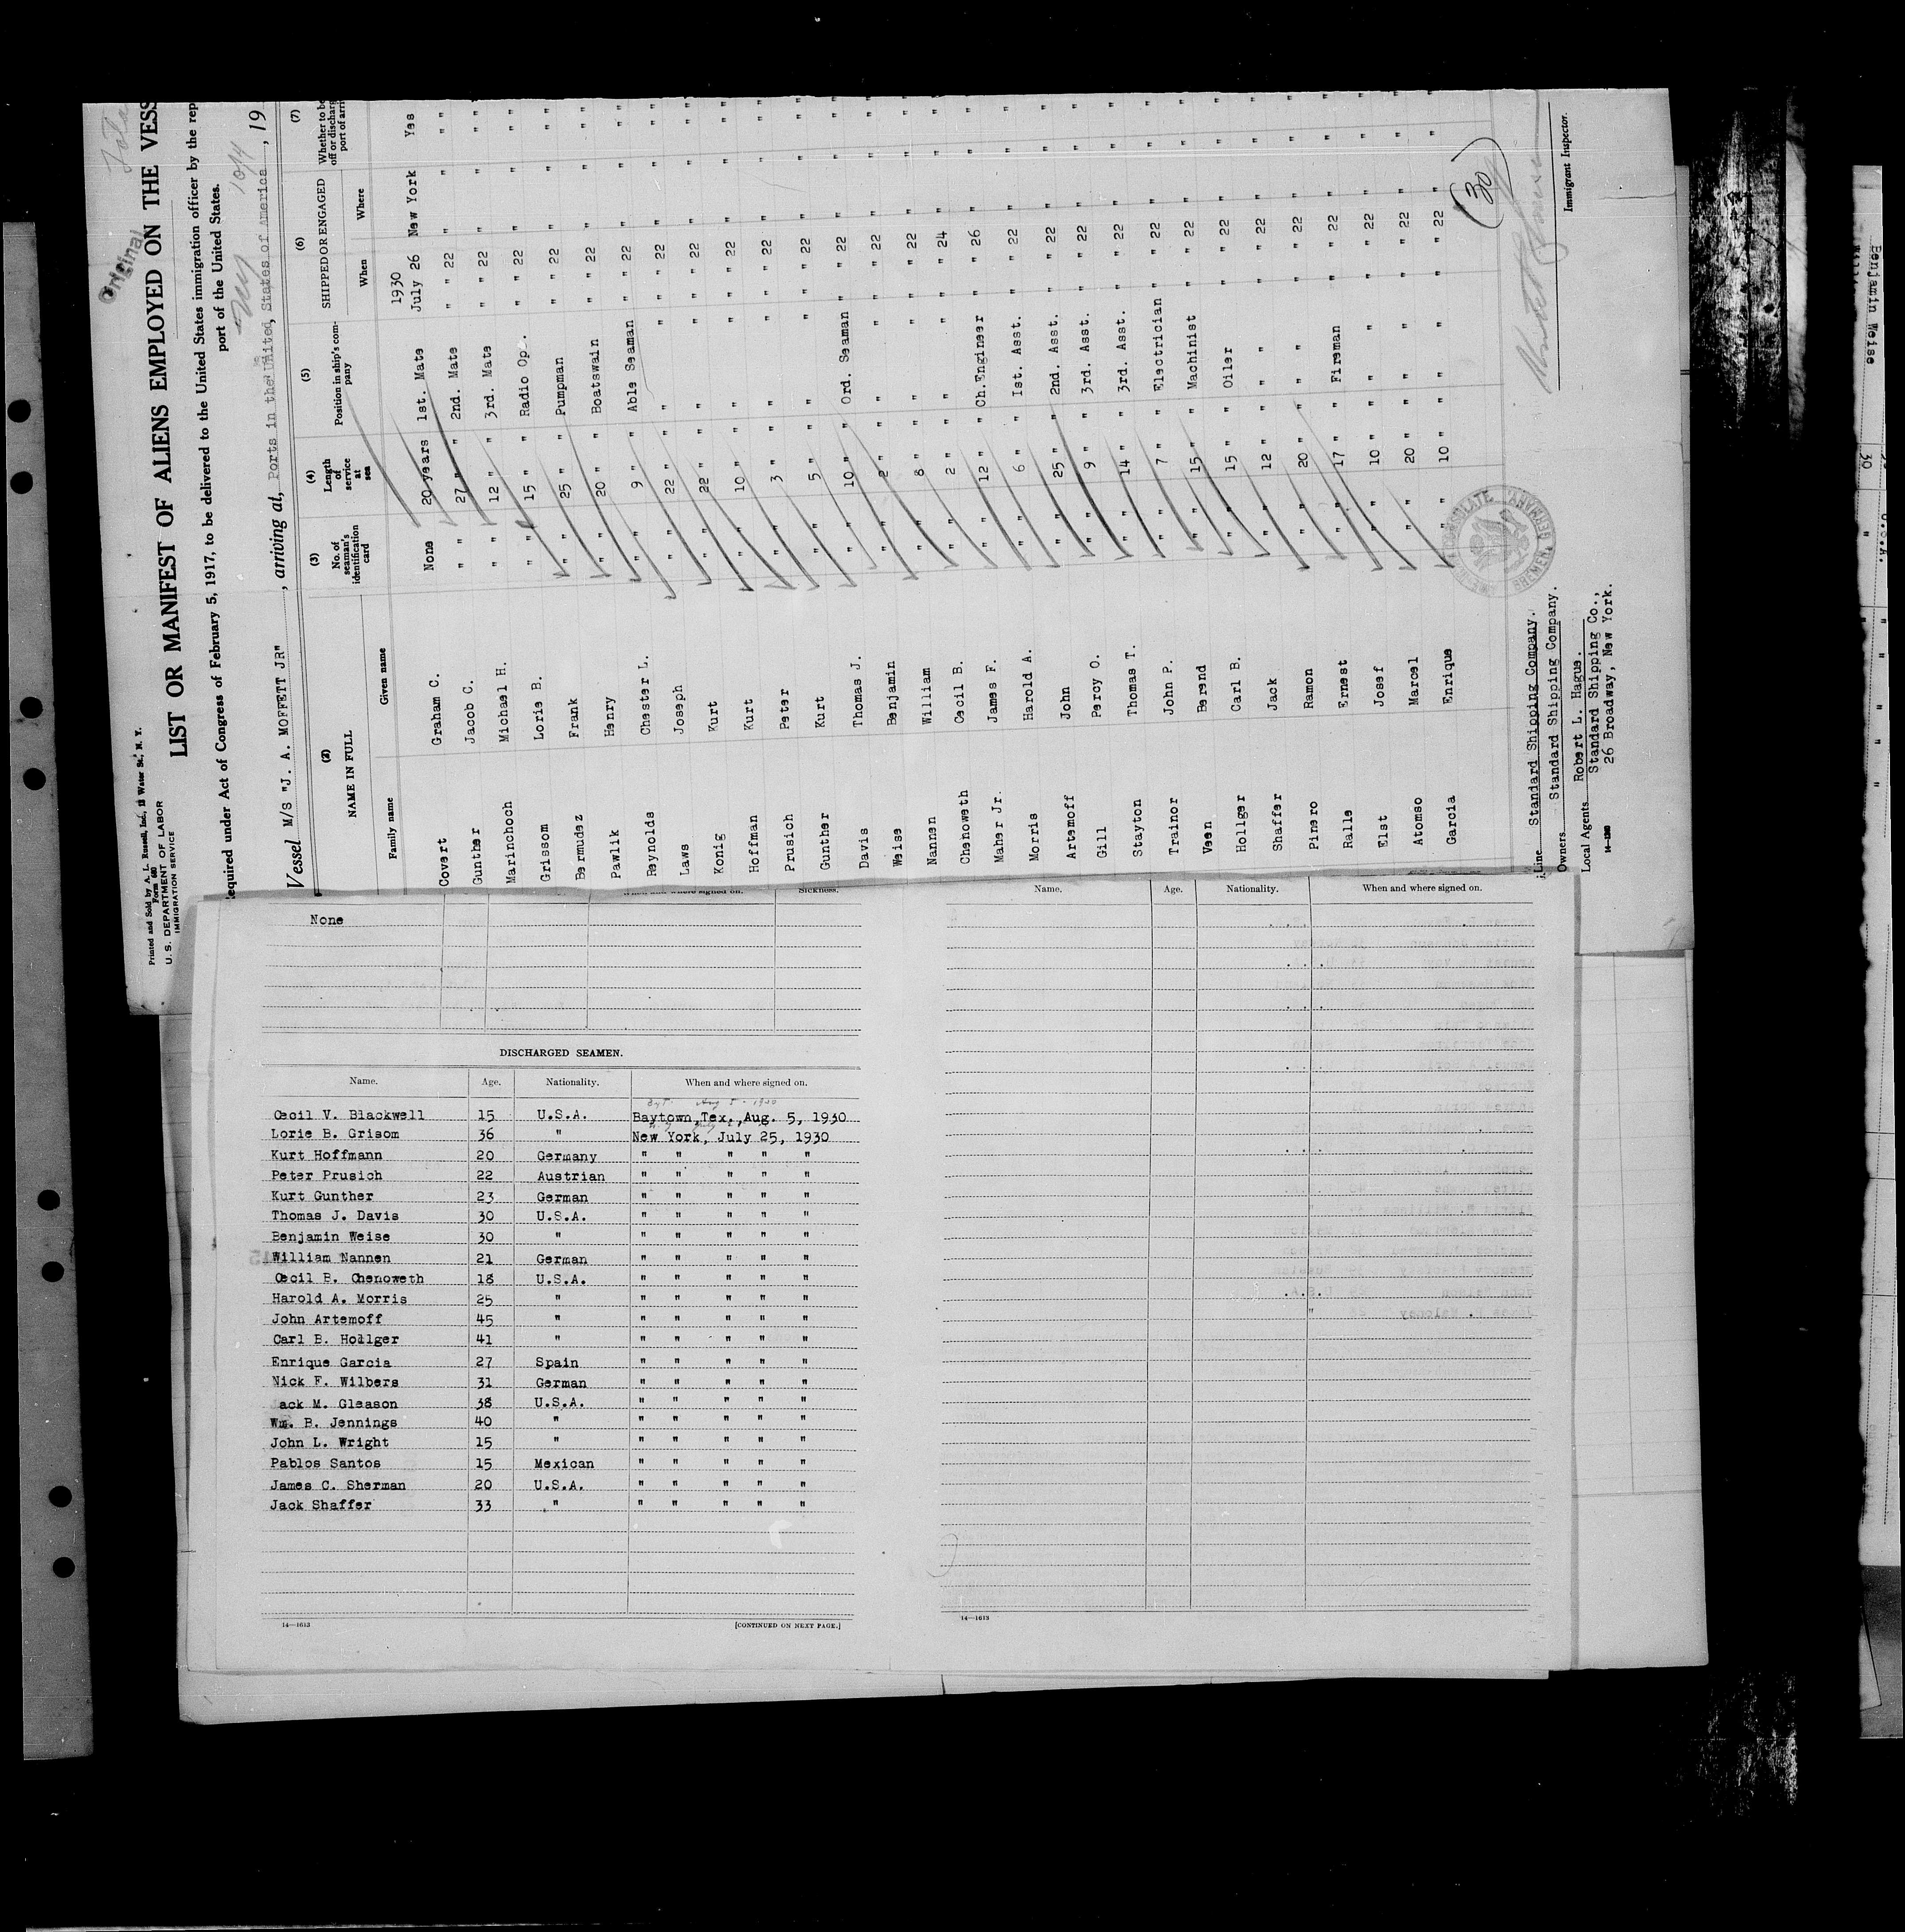 Original
Printed and Sold by A. L. Russell, Inc., 12 Water St., N. Y.
Form 680
U. S. DEPARTMENT OF LABOR
IMMIGRATION SERVICE
LIST OR MANIFEST OF ALIENS EMPLOYED ON THE VESS
equired under Act of Congress of February 5, 1917, to be delivered to the United States immigration officer by the rep
port of the United States.
Vessel M/S "J. A. MOFFETT JR" , arriving at, Ports in the United States of America , 19
(2) (3) (4) (5) (6) (7)
NAME IN FULL No. of seaman's identification card Length of service at sea Position in ship's company SHIPPED OR ENGAGED Whether to be off or discharg port of arri
Family name Given name When Where
1930
Covert Graham C. None 20 years 1st. Mate July 26 New York Yes
Gunther Jacob C. " " 27 " 2nd. Mate " " 22 " " "
Marinchoch Michael H. " " 12 " 3rd. Mate " " 22 " " "
Grissom Lorie B. " " 15 " Radio Op. " " 22 " " "
Bermudez Frank " " 25 " Pumpman " " 22 " " "
Pawlik Henry " " 20 " Boatswain " " 22 " " "
Reynolds Chester L. " " 9 " Able Seaman " " 22 " " "
Laws Joseph " " 22 " " " " 22 " " "
Konig Kurt " " 22 " " " " 22 " " "
Hoffman Kurt " " 10 " " " " 22 " " "
Prusich Peter " " 3 " " " " 22 " " "
Gunther Kurt " " 5 " " " " 22 " " "
Davis Thomas J. " " 10 " Ord. Seaman " " 22 " " "
Weise Benjamin " " 2 " " " " 22 " " "
Nannen William " " 8 " " " " 22 " " "
Chenoweth Cecil B. " " 2 " " " " 24 " " "
Maher Jr. James F. " " 12 " Ch.Engineer " " 26 " " "
Morris Harold A. " " 6 " 1st. Asst. " " 22 " " "
Artemoff John " " 25 " 2nd. Asst. " " 22 " " "
Gill Percy O. " " 9 " 3rd. Asst. " " 22 " " "
Stayton Thomas T. " " 14 " 3rd. Asst. " " 22 " " "
Trainor John P. " " 7 " Electrician " " 22 " " "
Veen Berend " " 15 " Machinist " " 22 " " "
Hollger Carl B. " " 15 " Oiler " " 22 " " "
Shaffer Jack " " 12 " " " " 22 " " "
Pinero Ramon " " 20 " " " " 22 " " "
Ralle Ernest " " 17 " Fireman " " 22 " " "
Elst Josef " " 10 " " " " 22 " " "
Atomso Marcel " " 20 " " " " 22 " " "
Garcia Enrique " " 10 " " " " 22 " " "
(30)
CONSULATE GERMANY BREMEN
Line Standard Shipping Company.
Owners Standard Shipping Company.
Local Agents Robert L. Hague.
Standard Shipping Co.,
26 Broadway, New York.
Immigrant Inspector.
When and where signed on. Sickness.
None
DISCHARGED SEAMEN.
Name. Age. Nationality. When and where signed on.
Cecil V. Blackwell 15 U.S.A. Baytown,Tex.,Aug. 5, 1930
Lorie B. Grisom 36 " New York, July 25, 1930
Kurt Hoffmann 20 Germany " " " " "
Peter Prusich 22 Austrian " " " " "
Kurt Gunther 23 German " " " " "
Thomas J. Davis 30 U.S.A. " " " " "
Benjamin Weise 30 " " " " " "
William Nannen 21 German " " " " "
Cecil B. Chenoweth 18 U.S.A. " " " " "
Harold A. Morris 25 " " " " " "
John Artemoff 45 " " " " " "
Carl B. Hollger 41 " " " " " "
Enrique Garcia 27 Spain " " " " "
Nick F. Wilbers 31 German " " " " "
ack M. Gleason 38 U.S.A. " " " " "
Wm. B. Jennings 40 " " " " " "
John L. Wright 15 " " " " " "
Pablos Santos 15 Mexican " " " " "
James C. Sherman 20 U.S.A. " " " " "
Jack Shaffer 33 " " " " " "
14—1613 [CONTINUED ON NEXT PAGE.]
Name. Age. Nationality. When and where signed on.
14—1613
Benjamin Weise 30